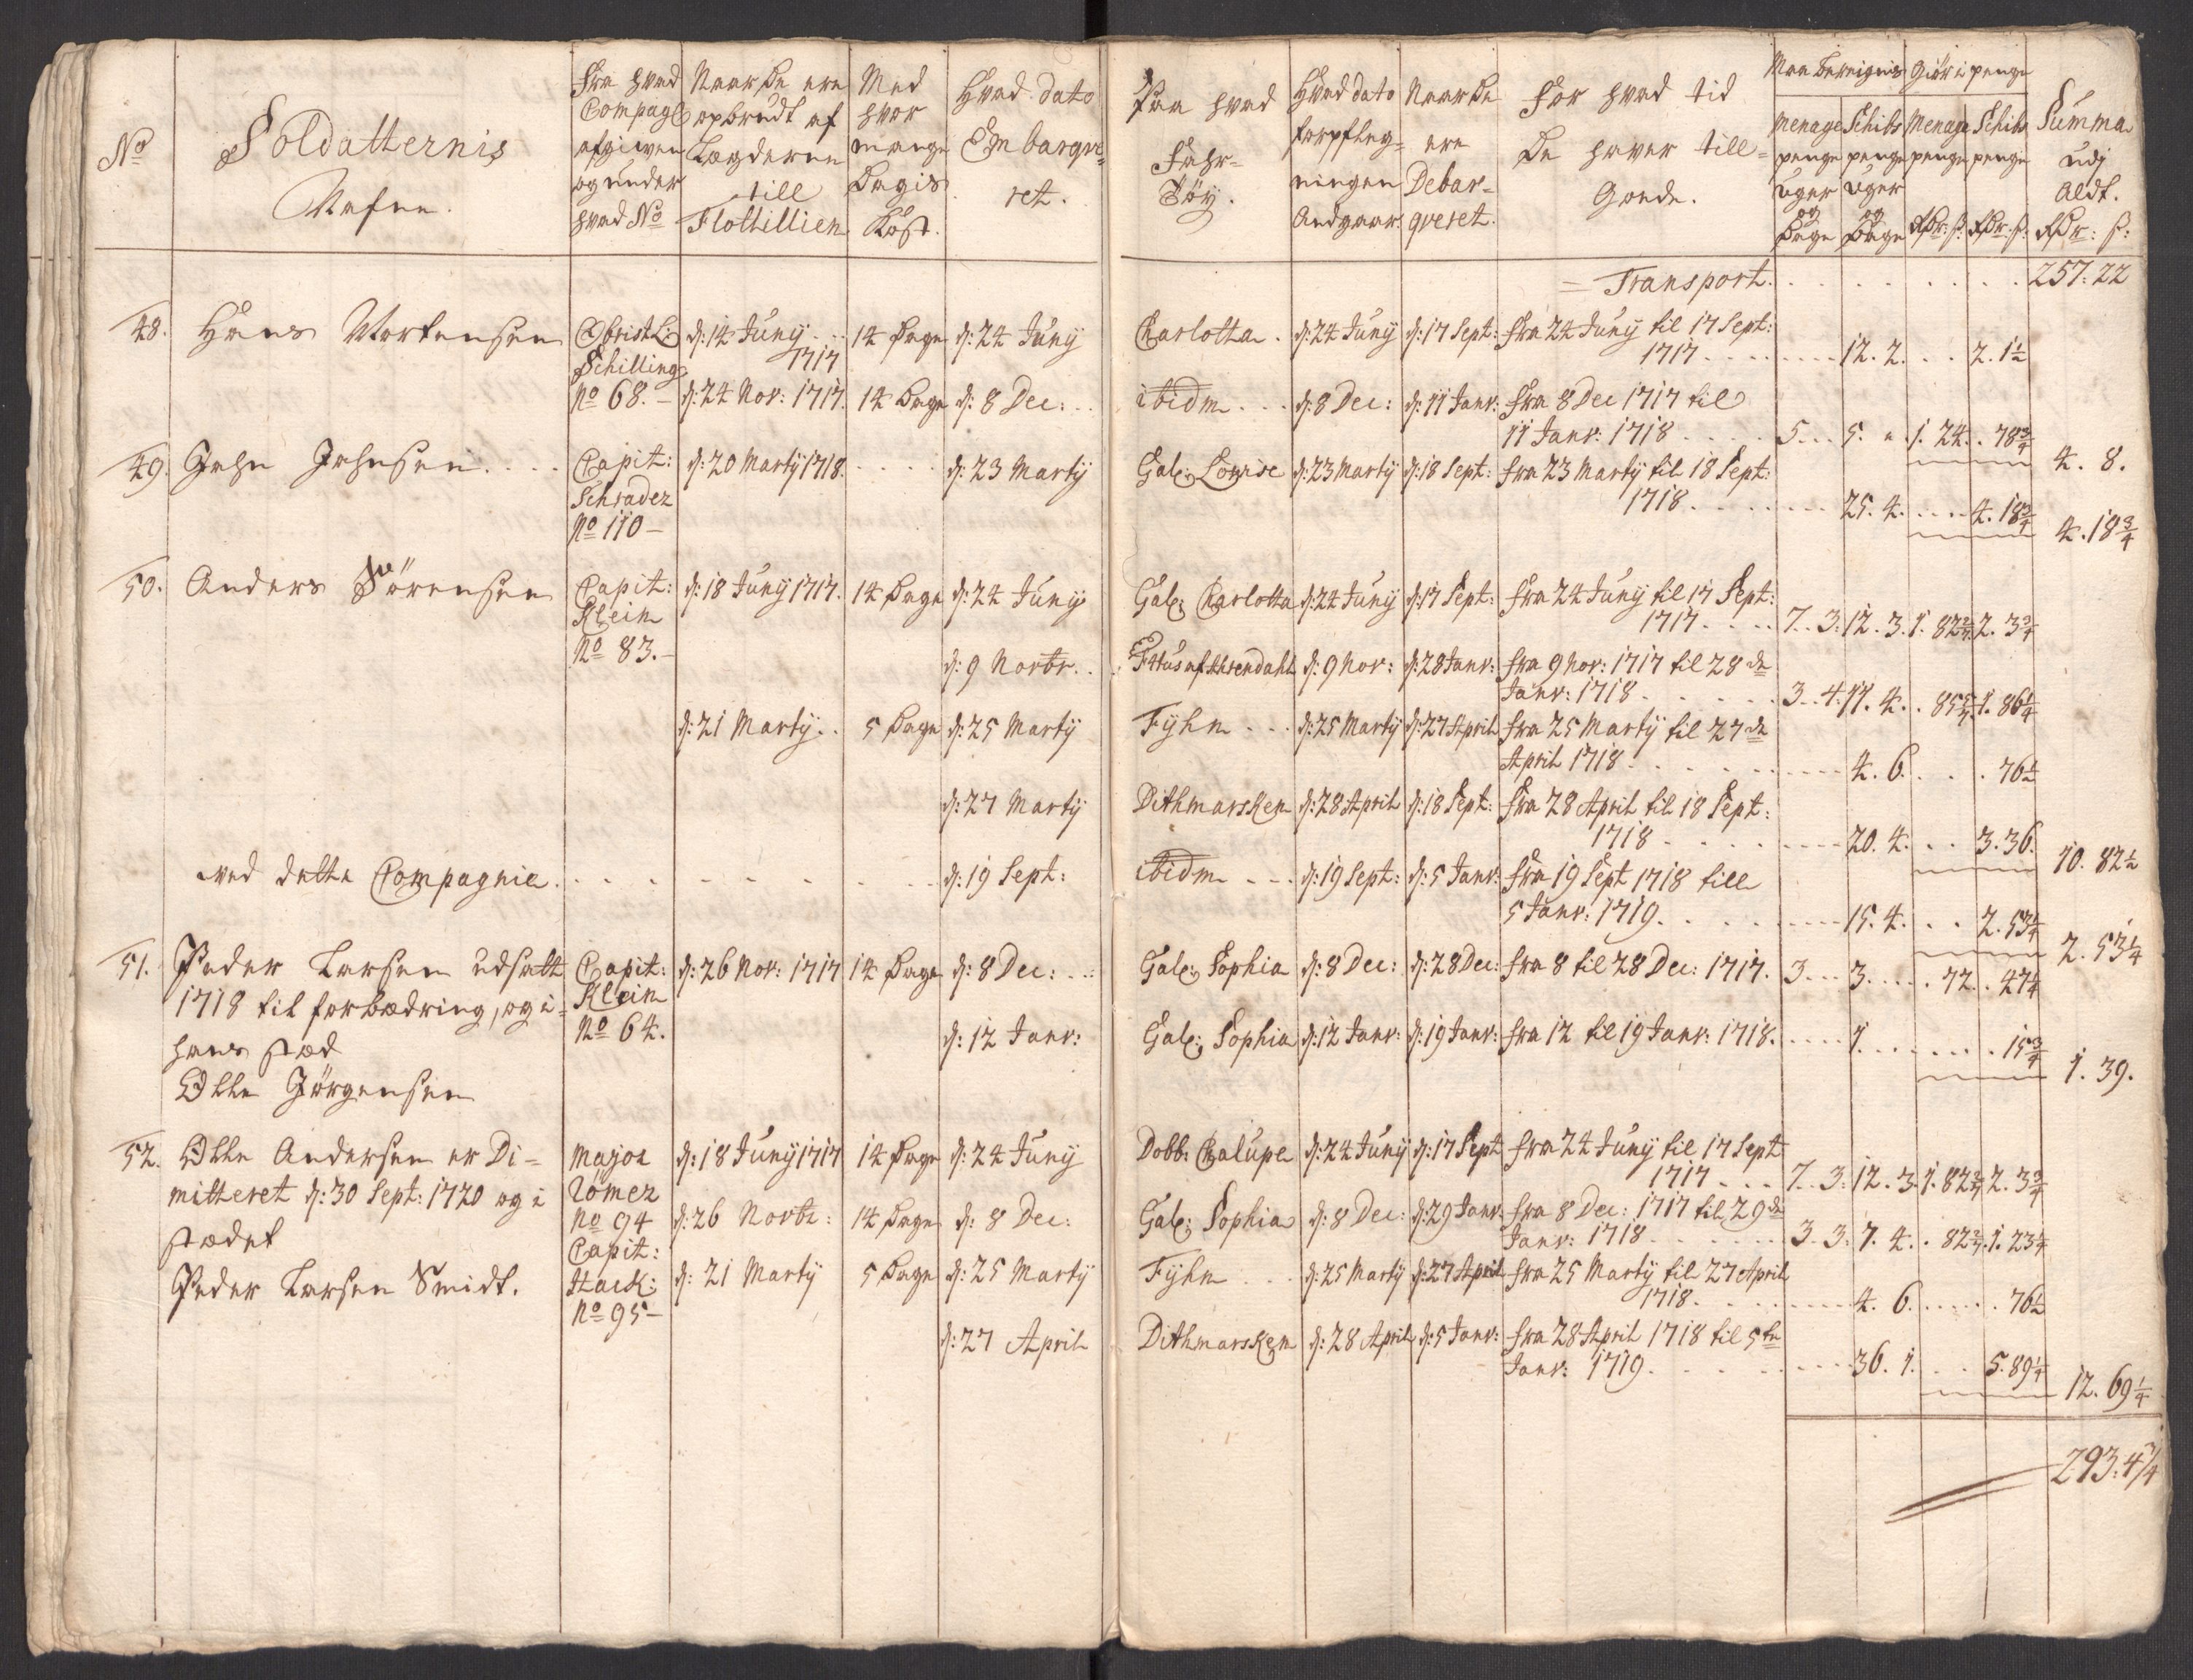 No
Soldatternis
Nafne.
Fra hvad
Compagl
afgiwen
og under
hvad No
Naar de ere
opbrudt af
Lægderne
till
Flottillien
Med
hvor
mange
Dagis
Kost.
Hvad dato
Embarqve=
ret.
Paa hvad
Fahr=
Töy.
Hvad dato
forpfleg=
ningen
Andgaar.
Naar de
ere
Debar=
qveret.
For hvad tid
De haver till=
Gode.
Maa bereignis
Giör i penge
Menage
penge
Uger
og
Dage
Schibs
penge
Uger
og
Dage
Menage
penge
Rdr: ß:
Schibs
penge
Rdr: ß:
Summa
udj
Aldt.
Rdr: ß:
= Transport. 257. 22
48. Hans Mortensen Obrist L: d: 14 Juny 14 Dage d: 24 Juny Carlotta. d: 24 Juny d: 17 Sept: fra 24 Juny til 17 Sept:
Schilling 1717 1717 12. 2. 2. 1½
No 68. d: 24 Nov: 1717. 14 Dage d: 8 Dec: ibidm d: 8 Dec: d: 11 Janv: fra 8 Dec 1717 til
11 Janv: 1718 5 5. 1. 24. 78¾ 4. 8.
49. Jahn Jahnsen Capit: d: 20 Marty 1718. d: 23 Marty Gal: Lowise d: 23 Marty d: 18 Sept: fra 23 Marty til 18 Sept:
Schrader 1718 25. 4. 4. 18¾ 4. 18¾
No 110
50. Anders Sörensen Capit: d: 18 Juny 1717. 14 Dage d: 24 Juny Gal: Carlotta d: 24 Juny d: 17 Sept: fra 24 Juny til 17 Sept:
Klein 1717 7. 3. 12. 3. 1. 82 2. 3¾
No 83. d: 9 Novbr. d: 9 Nov: d: 28 Janv: fra 9 Nov: 1717 til 28 de
Janv: 1718 3. 4. 11. 4. 85 1. 86¼
d: 21 Marty 5 Dage d: 25 Marty Fyhn d: 25 Marty d: 27 April fra 25 Marty til 27 de
April 1718 4. 6. 76½
d: 27 Marty Dithmarsken d: 28 April d: 18 Sept: fra 28 April til 18 Sept:
1718 20. 4. 3. 36. 10. 82½
ved dette Compagnie d: 19 Sept: ibidm d: 19 Sept: d: 5 Janv: fra 19 Sept 1718 till
5 Janv: 1719 15. 4. 2. 53¼ 2. 53¼
51. Peder Larsen udsatt Capit: d: 26 Nov: 1717 14 Dage d: 8 Dec: Gal: Sophia d: 8 Dec: d: 28 Dec: fra 8 til 28 Dec: 1717. 3 3 72. 47¼
1718 til forbædring, og i Klein
hans stæd No 64. d: 12 Janv: Gal: Sophia d: 12 Janv: d: 19 Janv: fra 12 til 19 Janv: 1718. 1 15¾ 1. 39.
Olle Jörgensen
52. Olle Andersen er Di= Major d: 18 Juny 1717 14 Dage d: 24 Juny Dobb: Chalupe d: 24 Juny d: 17 Sept fra 24 Juny til 17 Sept
mitteret d: 30 Sept: 1720 og i Römer 1717 7. 3. 12. 3. 1. 82 2. 3¾
stædet No 94 d: 26 Novbr: 14 Dage d: 8 Dec: Gal: Sophia d: 8 Dec: d: 29 Janv: fra 8 Dec: 1717 til 29 de
Capit: Janv: 1718 3. 3. 7. 4. 82 1. 23¼
Peder Larsen Smidt. Hack: d: 21 Marty 5 Dage d: 25 Marty Fyhn d: 25 Marty d: 27 April fra 25 Marty til 27 April
No 95 1718 4. 6. 76½
d: 27 April Dithmarsken d: 28 April d: 5 Janv: fra 28 April 1718 til 5te
Janv: 1719 36. 1. 5. 89¼ 12. 69¼
293. 4¾